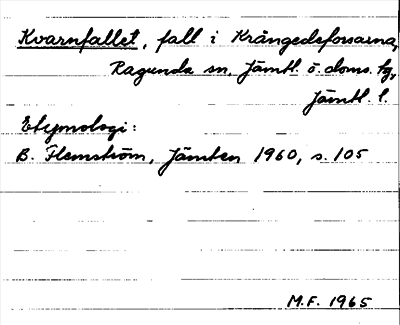 Kvarnfallet, fall i Krångedeforsarna,
Ragunda sn, Jämtl. ö. doms. hg,
Jämtl. l.
Etymologi:
B. Flemström, Jämten 1960, s. 105
M.F. 1965